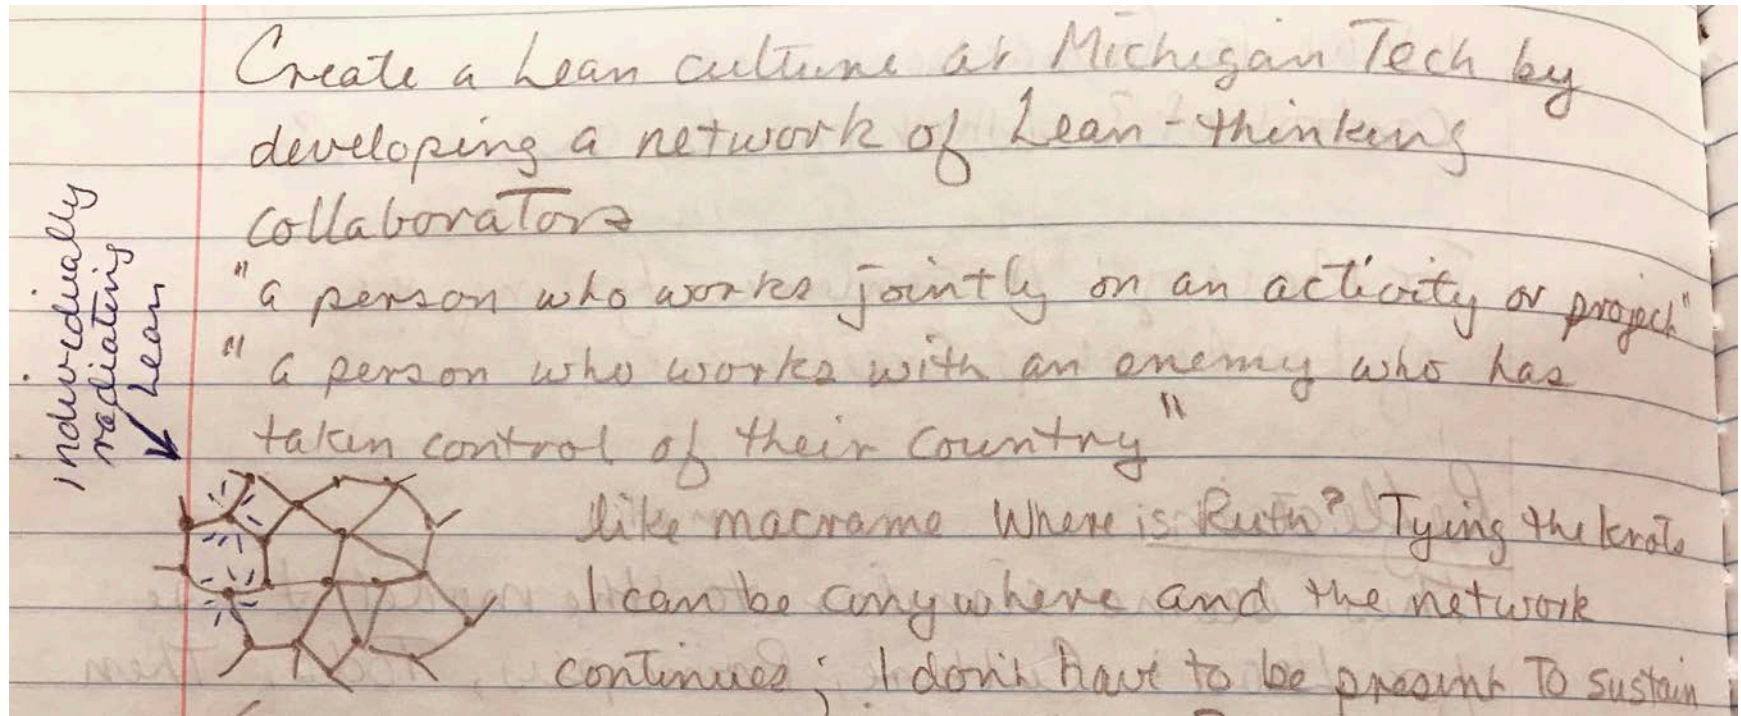 Create a Lean culture at Michigan Tech by
developing a network of Lean-thinking
collaborators
"a person who works jointly on an activity or project"
"a person who works with an enemy who has
taken control of their country"
individually
radiating
Lean
like macrame Where is Ruth? Tying the knots
I can be anywhere and the network
continues; I don't have to be present to sustain